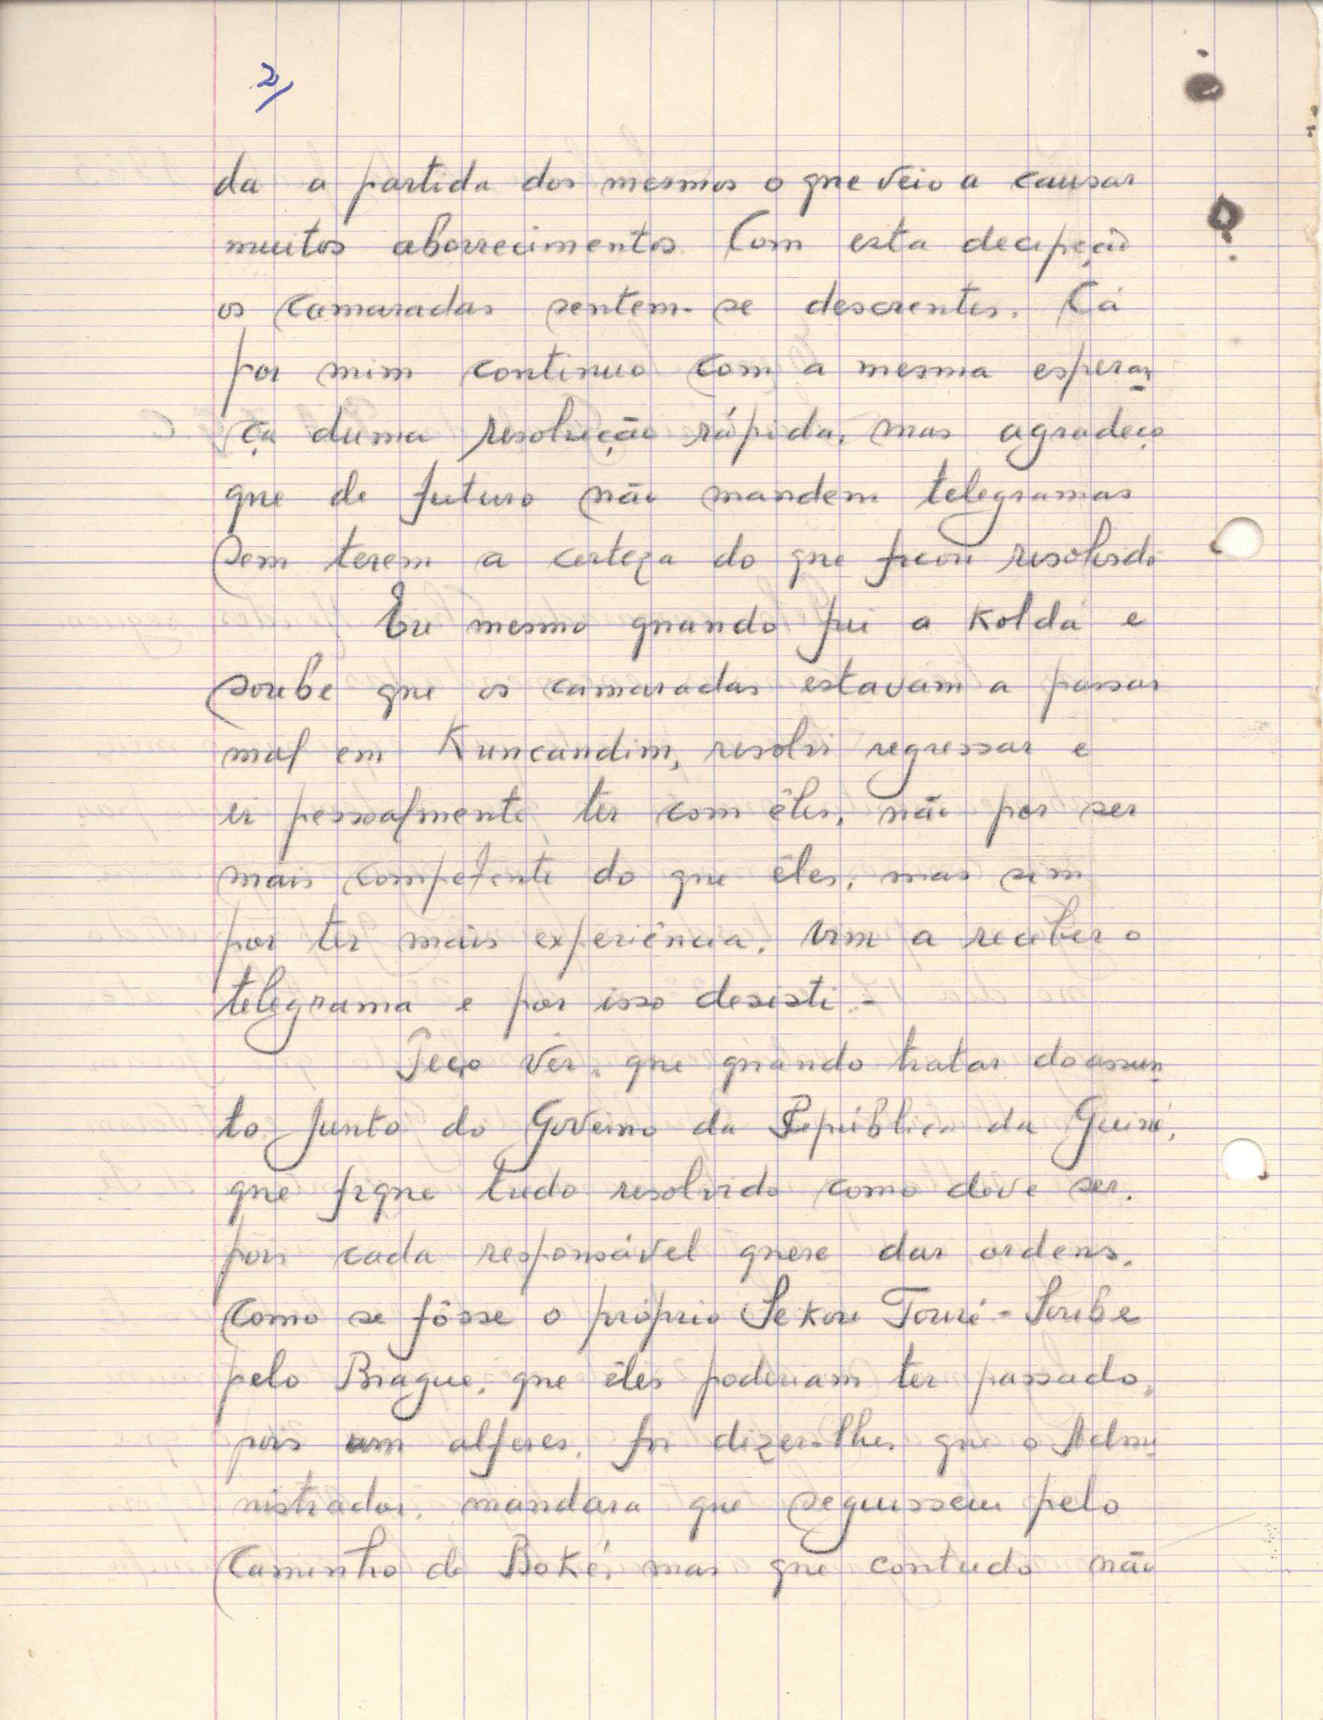 2/
da a partida dos mesmos o que veio a causar
muitos aborrecimentos. Com esta decepção
os camaradas sentem-se descrentes. Cá
por mim continuo com a mesma esperan
ça duma resolução rápida, mas agradeço
que de futuro não mandem telegramas
sem terem a certeza do que ficou resolvido
Eu mesmo quando fui a Koldá e
soube que os camaradas estavam a passar
mal em Kuncandim, resolvi regressar e
ir pessoalmente ter com êles, não por ser
mais competente do que êles, mas sim
por ter mais experiência. Vim a receber o
telegrama e por isso desisti.-
Peço ver, que quando tratar do assun
to junto do Governo da República da Guiné,
que fique tudo resolvido como deve ser.
pois cada responsável quere dar ordens,
como se fôsse o próprio Sekou Touré - Soube
pelo Biague, que êles poderiam ter passado,
pois um alferes, foi dizer-lhes que o Admi
nistrador, mandara que seguissem pelo
Caminho de Boké, mas que contudo não